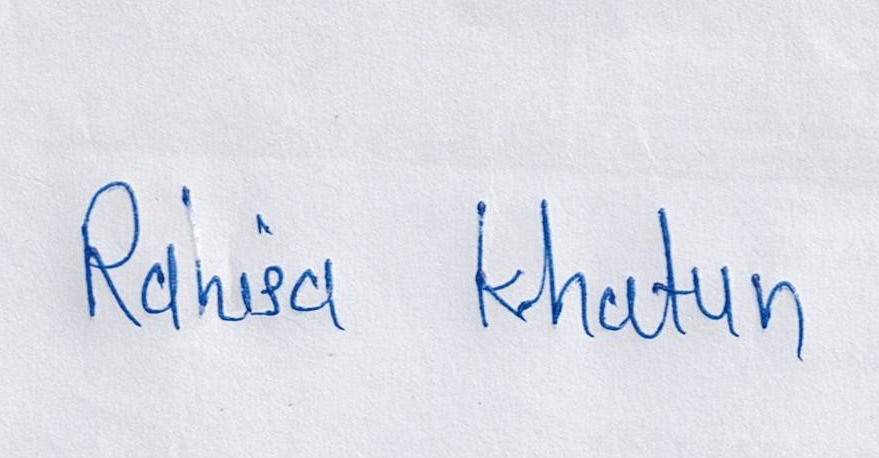 Rahisa khatun